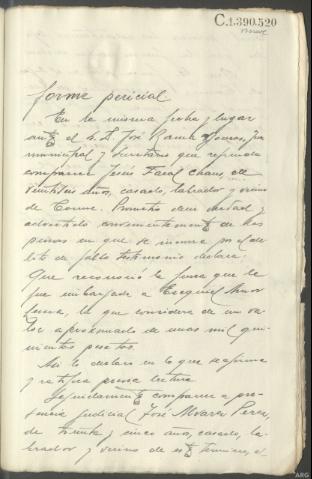 C.1.390.520
forme pericial
En la misma fecha y lugar
ante el S. D. José Ramil Gomez, Juez
municipal y Secretario que refrenda
comparece Jesús Facal Chans, de
veintiseis años, casado, labrador y vecino
de Corme. Promete decir verdad y
advertido convenientemente de las
penas en que se incurre por el de
lito de falso testimonio declara:
Que reconoció la finca que le
fue embargada a Ezequiel
la que considera de un va
lor aproximado de unas mil qui-
nientas pesetas.
Así lo declara en lo que se afirma
y ratifica previa lectura
Seguidamente comparece a pre-
sencia judicial José Alvarez Perez,
de treinta y cinco años, casado, la-
brador y vecino de este termino, el
ARG